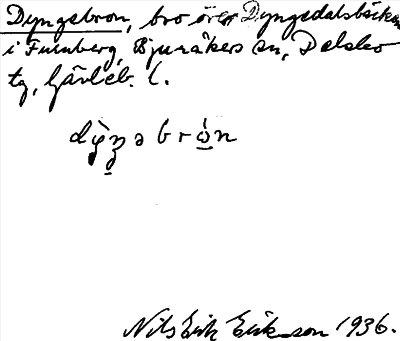 Dyngsbron, bro över Dyngsdalsbäcken
i Furuberg, Bjuråkers sn, Delsbo
tg, Gävleb. l.
Nils Erik Eriksson 1936.